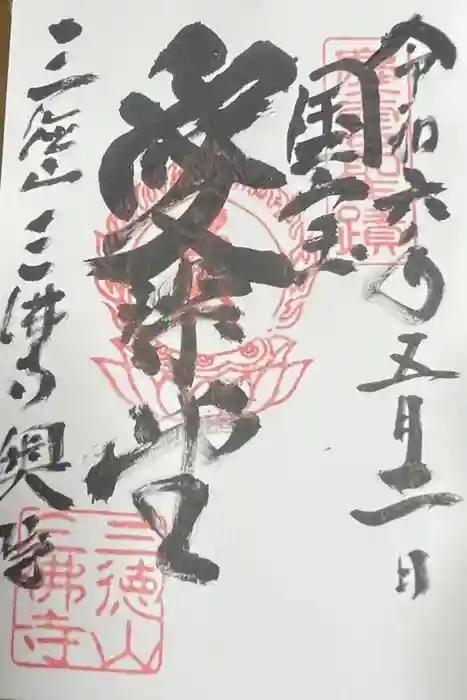 令和六年五月二日
国宝
愛染堂
三徳山 三佛寺 奥院
三徳山
三佛寺